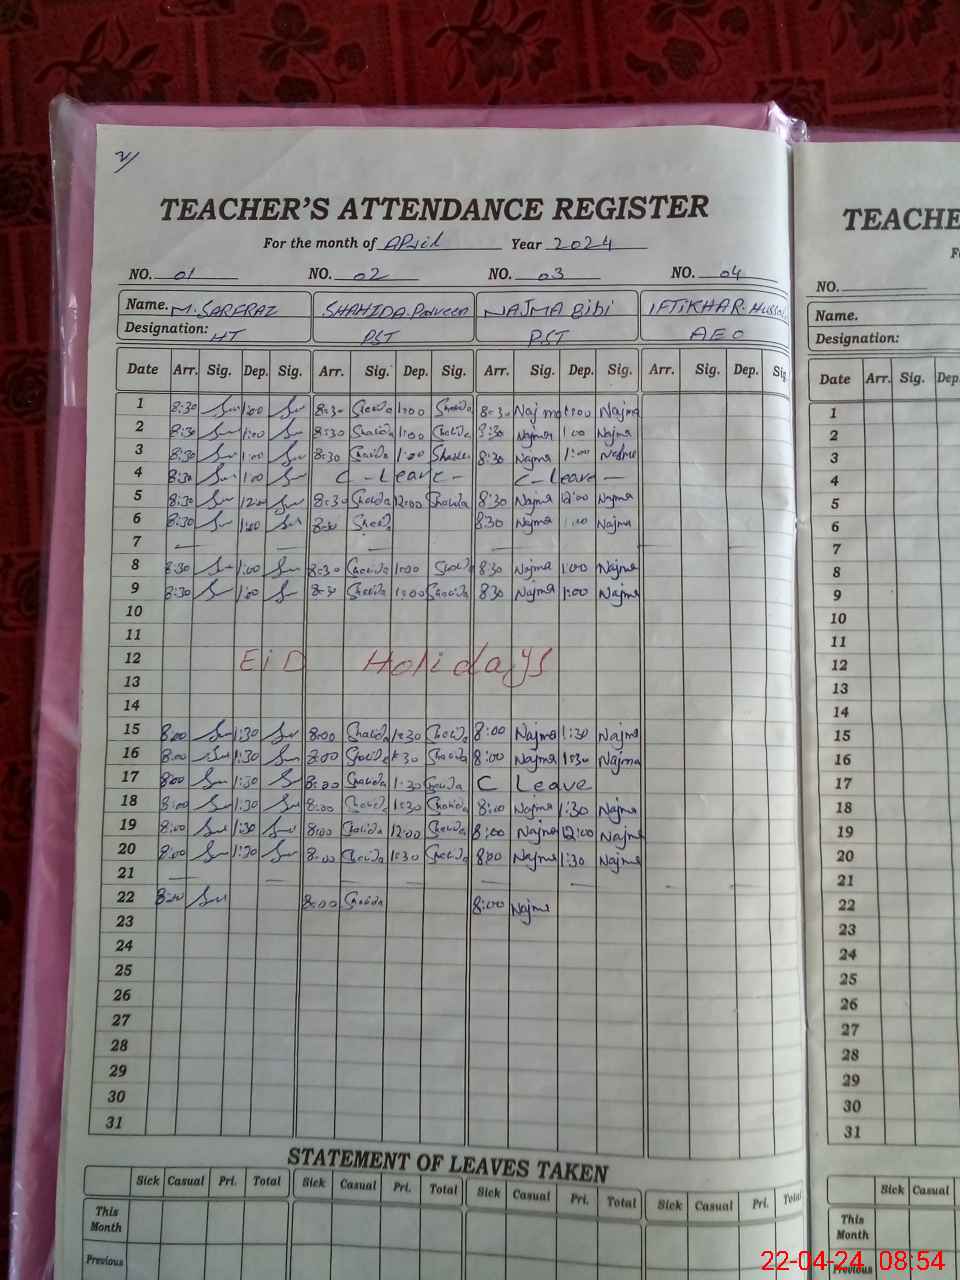 2/
TEACHER'S ATTENDANCE REGISTER
For the month of April Year 2024
NO. 01 NO. 02 NO. 03 NO. 04
Name. M. SARFRAZ SHAHIDA Parveen NAJMA Bibi IFTIKHAR. Hussai
Designation: HT PST PST AEO
Date Arr. Sig. Dep. Sig. Arr. Sig. Dep. Sig. Arr. Sig. Dep. Sig. Arr. Sig. Dep. Sig.
1 8:30 1:00 8:30 Shahida 1:00 Shahida 8:30 Najma 1:00 Najma
2 8:30 1:00 8:30 Shahida 1:00 Shahida 8:30 Najma 1:00 Najma
3 8:30 1:00 8:30 Shahida 1:00 8:30 Najma 1:00 Najma
4 8:30 1:00 C - Leave - C - Leave -
5 8:30 12:00 8:30 Shahida 12:00 Shahida 8:30 Najma 12:00 Najma
6 8:30 1:00 8:30 8:30 Najma 1:00 Najma
7 — — — — — —
8 8:30 1:00 8:30 Shahida 1:00 8:30 Najma 1:00 Najma
9 8:30 1:00 8:30 Shahida 1:00 Shahida 8:30 Najma 1:00 Najma
10
11
12 EiD Holidays
13
14
15 8:00 1:30 8:00 Shahida 1:30 Shahida 8:00 Najma 1:30 Najma
16 8:00 1:30 8:00 Shahida 1:30 Shahida 8:00 Najma 1:30 Najma
17 8:00 1:30 8:00 Shahida 1:30 Shahida C Leave
18 8:00 1:30 8:00 Shahida 1:30 Shahida 8:00 Najma 1:30 Najma
19 8:00 1:30 8:00 Shahida 12:00 Shahida 8:00 Najma 12:00 Najma
20 8:00 1:30 8:00 Shahida 1:30 Shahida 8:00 Najma 1:30 Najma
21 — — — — — — — —
22 8:00 8:00 Shahida 8:00 Najma
23
24
25
26
27
28
29
30
31
STATEMENT OF LEAVES TAKEN
Sick Casual Pri. Total Sick Casual Pri. Total Sick Casual Pri. Total Sick Casual Pri. Total
This Month
Previous
TEACHE
F
NO.
Name.
Designation:
Date Arr. Sig. Dep
1
2
3
4
5
6
7
8
9
10
11
12
13
14
15
16
17
18
19
20
21
22
23
24
25
26
27
28
29
30
31
Sick Casual
This Month
Previous
22-04-24 08:54